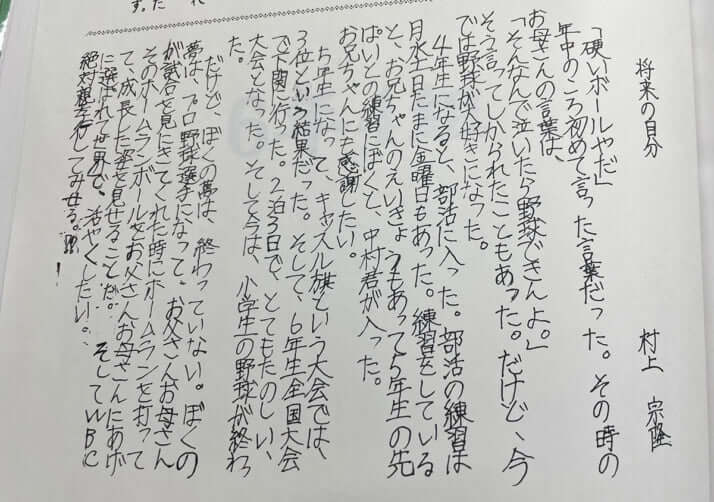 将来の自分
村上 宗隆
「硬いボールやだ」
年中のころ初めて言った言葉だった。その時の
お母さんの言葉は、
「そんなんで泣いたら野球できんよ。」
そう言ってしかられたこともあった。だけど、今
では野球が大好きになった。
4年生になると、部活に入った。部活の練習は
月水土日たまに金曜日もあった。練習をしている
と、お兄ちゃんのえいきょうもあって5年生の先
ぱいとの練習にぼくと、中村君が入った。
お兄ちゃんにも感謝したい。
5年生になって、キャッスル旗という大会では、
3位という結果だった。そして、6年生全国大会
で下関に行った。2泊3日で、とてもたのしい、
大会となった。そして今は、小学生の野球が終わっ
た。
だけど、ぼくの夢は、終わっていない。ぼくの
夢は、プロ野球選手になって。お父さんお母さん
が試合を見にきてくれた時にホームランを打って
そのホームランボールをお父さんお母さんにあげ
て、成長した姿を見せることだ。そしてWBC
に選ばれ世界で、活やくしたい。
絶対想実行してみせる。!!!